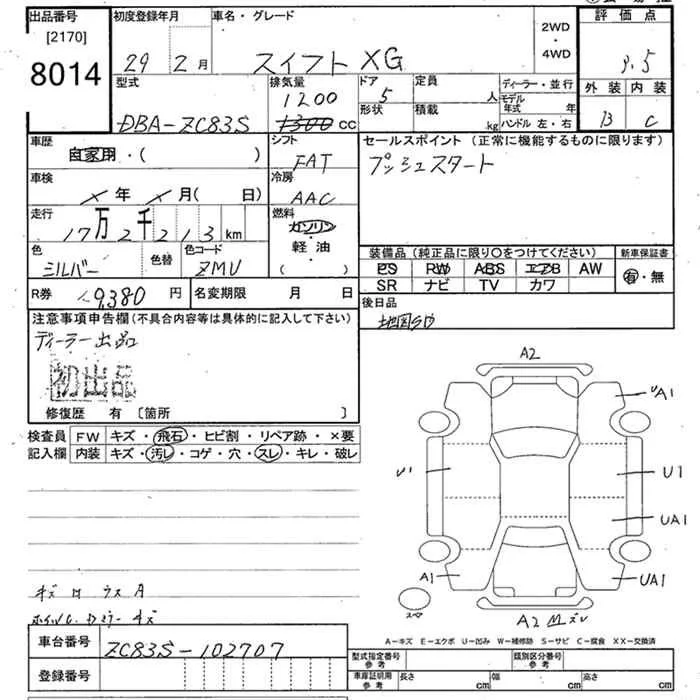 出品番号 初度登録年月 車名・グレード 2WD・4WD 評価点
[2170]
8014 29 2月 スイフト XG 3.5
型式 排気量 ドア 定員 ディーラー・並行 外装 内装
DBA-ZC83S 1200 1300 cc 5 人 モデル年式 年 B C
形状 積載 kg ハンドル 左・右
車歴 シフト セールスポイント(正常に機能するものに限ります)
自家用・( ) FAT プッシュスタート
車検 冷房
× 年 × 月( 日) AAC
走行 燃料
17万2千213km ガソリン
色 色替 色コード 軽油
シルバー ZMU ( )
装備品(純正品に限り○をつけてください) 新車保証書
PS RW ABS エアB AW 有・無
SR ナビ TV カワ
R券 9,380円 名変期限 月 日 後日品
地図SD
注意事項申告欄(不具合内容等は具体的に記入して下さい)
ディーラー出品
初出品
修復歴 有 [箇所 ]
検査員 FW キズ・飛石・ヒビ割・リペア跡・×要
記入欄 内装 キズ・汚レ・コゲ・穴・スレ・キレ・破レ
A2
UA1
U1 U1
UA1
A1 UA1
スペ
A2 Mズレ
A-キズ E-エクボ U-凹み W-補修跡 S-サビ C-腐食 XX-交換済
車台番号 ZC83S-102707
登録番号
型式指定番号 参考 類別区分番号 参考
車庫証明用 参考 長さ cm 幅 cm 高さ cm